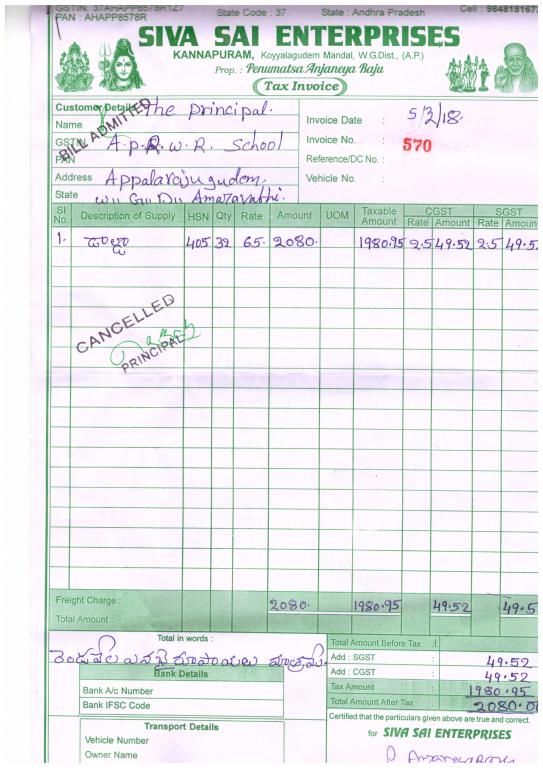 GSTIN. 37AHAPP8578R1Z7 State Code : 37 State : Andhra Pradesh Cell : 984818167
PAN : AHAPP8578R
SIVA SAI ENTERPRISES
KANNAPURAM, Koyyalagudem Mandal, W.G.Dist., (A.P.)
Prop. : Penumatsa Anjaneya Raju
Tax Invoice
Customer Details The Principal.
Name
BILL ADMITTED
GSTIN A.P.R.W.R. School
PAN
Address Appalarajugudem.
State W.G.Dt. Amaravathi.
Invoice Date : 5/2/18.
Invoice No. : 570
Reference/DC No. :
Vehicle No. :
SI No. Description of Supply HSN Qty Rate Amount UOM Taxable Amount CGST Rate Amount SGST Rate Amount
1. డాల్డా 405 32 65. 2080. 1980.95 2.5 49.52 2.5 49.5
CANCELLED
PRINCIPAL
Freight Charge : 2080. 1980.95 49.52 49.5
Total Amount :
Total in words :
రెండువేల ఎనభై రూపాయలు మాత్రమే.
Bank Details
Bank A/c Number
Bank IFSC Code
Transport Details
Vehicle Number
Owner Name
Total Amount Before Tax :
Add : SGST : 49.52
Add : CGST : 49.52
Tax Amount : 1980.95
Total Amount After Tax : 2080.00
Certified that the particulars given above are true and correct.
for SIVA SAI ENTERPRISES